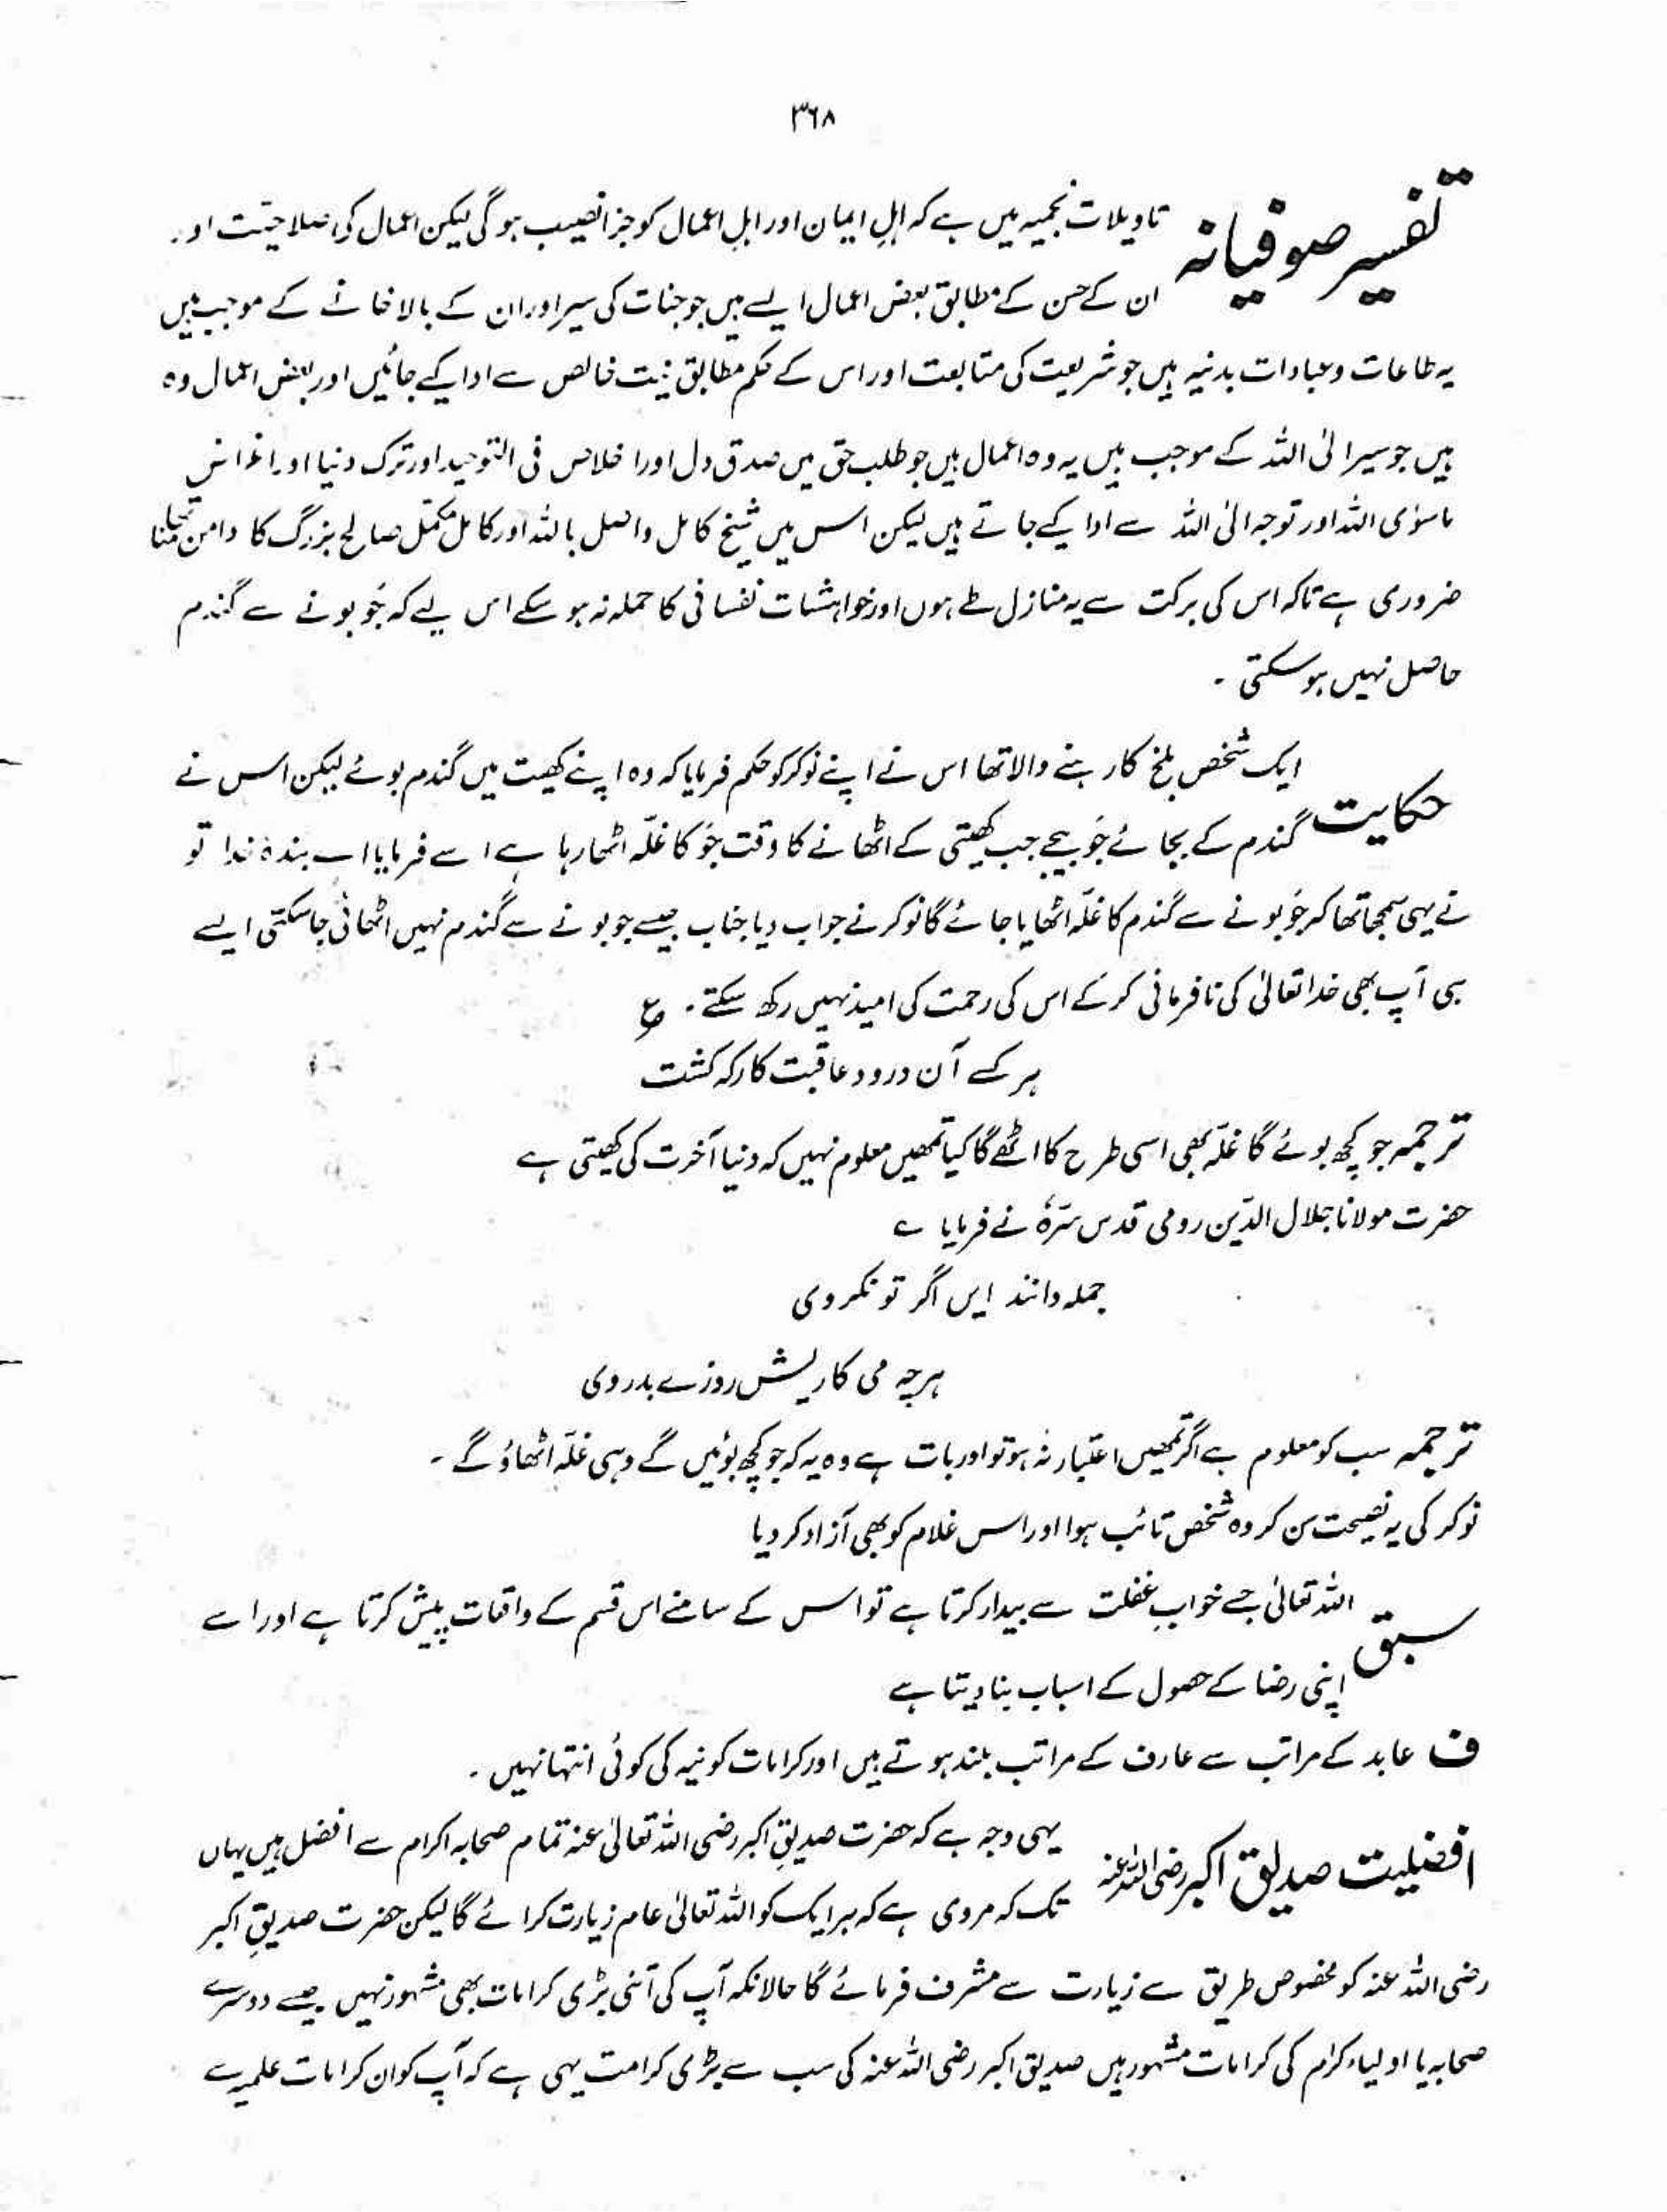 ۳۶۸
تفسیر صوفیانہ تاویلات نجمیہ میں ہے کہ اہلِ ایمان اور اہلِ اعمال کو جزا نصیب ہو گی لیکن اعمال کی صلاحیّت اور
ان کے حسن کے مطابق بعض اعمال ایسے ہیں جو جنات کی سیر اور ان کے بالا خانے کے موجب ہیں
یہ طاعات و عبادات بدنیہ ہیں جو شریعت کی متابعت اور اس کے حکم مطابق نیت خالص سے ادا کیے جائیں اور بعض اعمال وہ
ہیں جو سیر الی اللہ کے موجب ہیں یہ وہ اعمال ہیں جو طلب حق میں صدق دل اور اخلاص فی التوحید اور ترک دنیا اور اغراض
ماسوٰی اللہ اور توجہ الی اللہ سے ادا کیے جاتے ہیں لیکن اس میں شیخ کامل واصل باللہ اور کامل مکمّل صالح بزرگ کا دامن
ضروری ہے تاکہ اس کی برکت سے یہ منازل طے ہوں اور خواہشات نفسانی کا حملہ نہ ہو سکے اس لیے کہ جَو بونے سے گندم
حاصل نہیں ہو سکتی ۔
حکایت ایک شخص بلخ کا رہنے والا تھا اس نے اپنے نوکر کو حکم فرمایا کہ وہ اپنے کھیت میں گندم بوئے لیکن اس نے
گندم کے بجائے جَو بیجے جب کھیتی کے اٹھانے کا وقت جَو کا غلّہ اٹھا رہا ہے اسے فرمایا اے بندہ خدا تو
نے یہی سمجھا تھا کہ جَو بونے سے گندم کا غلّہ اٹھایا جائے گا نوکر نے جواب دیا جناب جیسے جو بونے سے گندم نہیں اٹھائی جا سکتی ایسے
ہی آپ بھی خدا تعالیٰ کی نافرمانی کر کے اس کی رحمت کی امید نہیں رکھ سکتے ۔ ع
ہر کسے آن درود عاقبت کار کہ کشت
ترجمہ جو کچھ بوئے گا غلّہ بھی اسی طرح کا اٹھے گا کیا تمھیں معلوم نہیں کہ دنیا آخرت کی کھیتی ہے
حضرت مولانا جلال الدّین رومی قدس سرّہٗ نے فرمایا ے
جملہ دانند ایں اگر تو نگروی
ہرچہ می کاریش روزے بدروی
ترجمہ سب کو معلوم ہے اگر تمھیں اعتبار نہ ہو تو اور بات ہے وہ یہ کہ جو کچھ بوئیں گے وہی غلّہ اٹھاؤ گے ۔
نوکر کی یہ نصیحت سن کر وہ شخص تائب ہوا اور اس غلام کو بھی آزاد کر دیا
سبق اللہ تعالیٰ جسے خوابِ غفلت سے بیدار کرتا ہے تو اس کے سامنے اس قسم کے واقعات پیش کرتا ہے اور اسے
اپنی رضا کے حصول کے اسباب بنا دیتا ہے
ف عابد کے مراتب سے عارف کے مراتب بلند ہوتے ہیں اور کرامات کونیہ کی کوئی انتہا نہیں ۔
افضلیت صدیق اکبر رضی اللہ عنہ یہی وجہ ہے کہ حضرت صدیقِ اکبر رضی اللہ تعالیٰ عنہ تمام صحابہ اکرام سے افضل ہیں یہاں
تک کہ مروی ہے کہ ہر ایک کو اللہ تعالیٰ عام زیارت کرائے گا لیکن حضرت صدیقِ اکبر
رضی اللہ عنہ کو مخصوص طریق سے زیارت سے مشرف فرمائے گا حالانکہ آپ کی اتنی بڑی کرامات بھی مشہور نہیں جیسے دوسرے
صحابہ یا اولیاء کرام کی کرامات مشہور ہیں صدیق اکبر رضی اللہ عنہ کی سب سے بڑی کرامت یہی ہے کہ آپ کو ان کرامات علمیہ سے